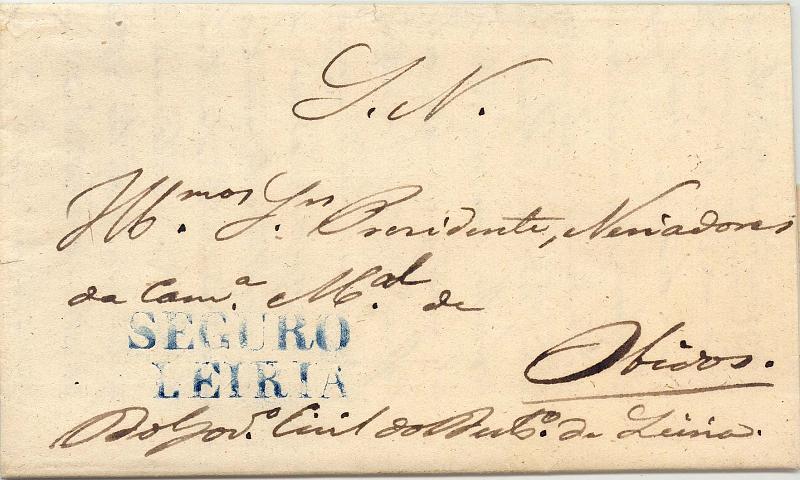 S. N.
Ill.mos Snrs Presidente, Veriadores
da Cam.a M.al de
SEGURO
LEIRIA
Obidos.
Do Gov.o Civil do de Leiria.